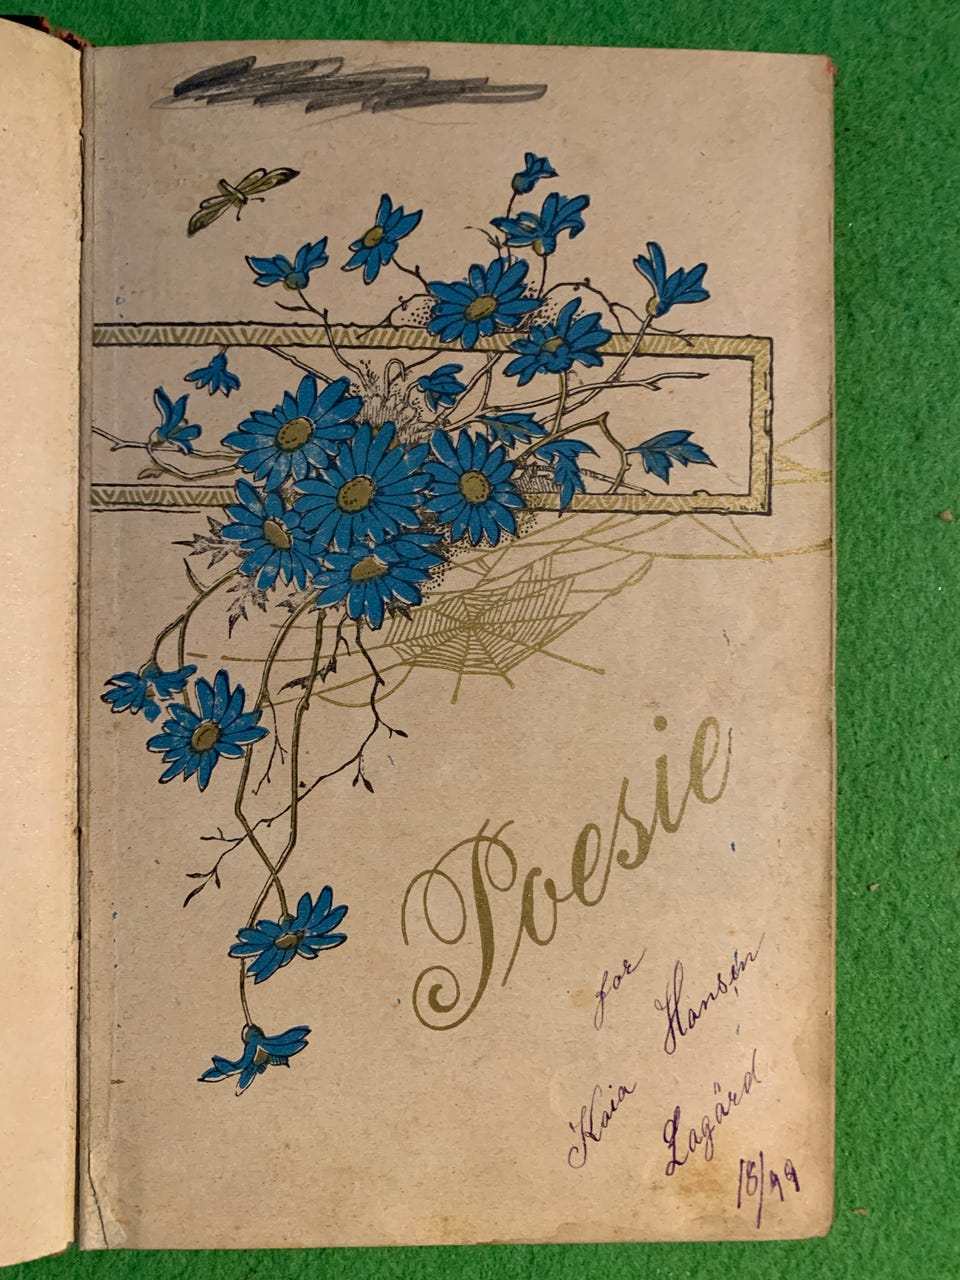 Poesie
for
Kaia Hansen
Lagård
18/99